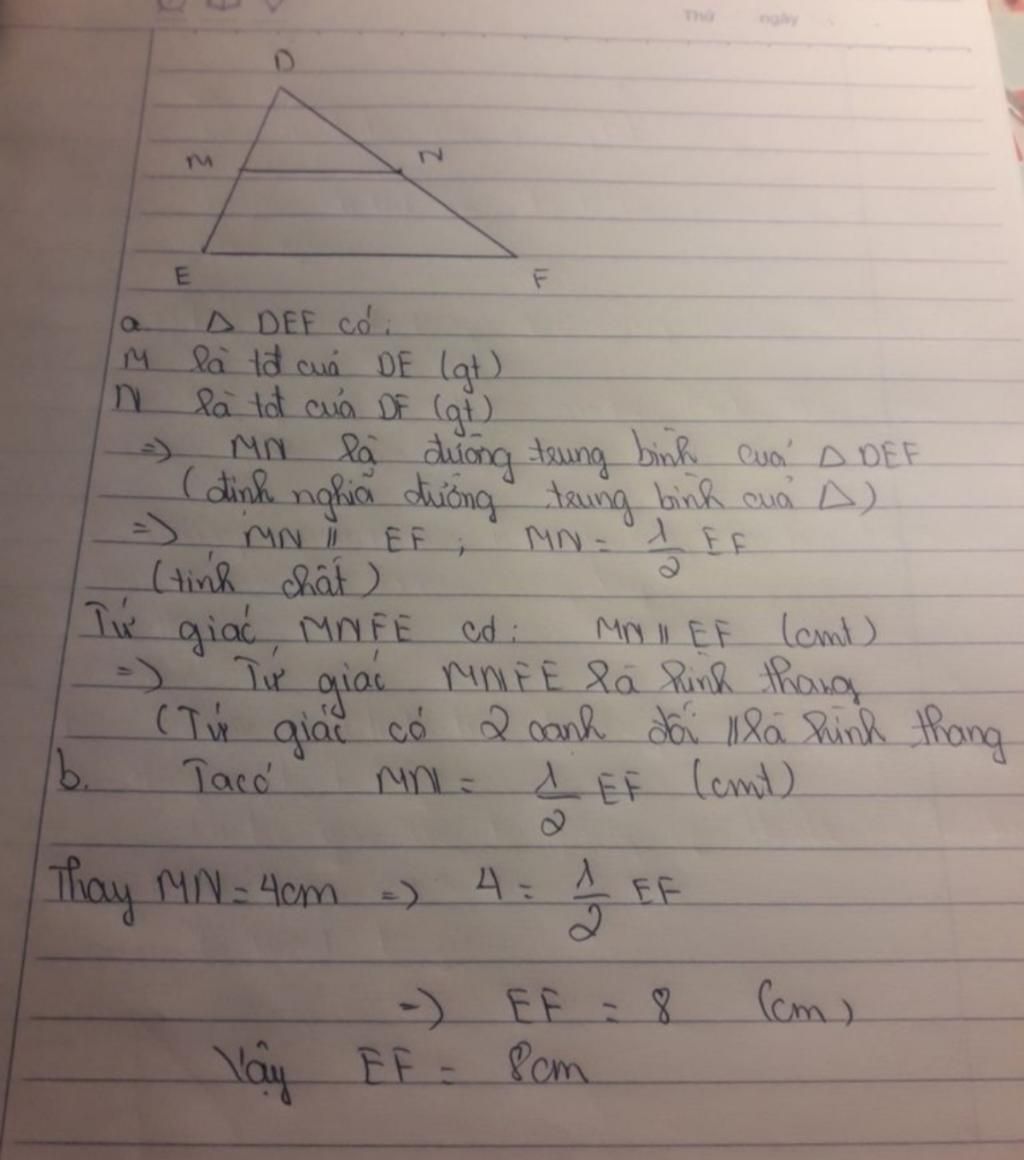 Thứ ngày
D
M N
E F
a △ DEF có:
M là tđ của DE (gt)
N là tđ của DF (gt)
=> MN là đường trung bình của △ DEF
(định nghĩa đường trung bình của △)
=> MN // EF ; MN = 1/2 EF
(tính chất)
Tứ giác MNFE có: MN // EF (cmt)
=> Tứ giác MNFE là hình thang
(Tứ giác có 2 cạnh đối // là hình thang
b. Ta có MN = 1/2 EF (cmt)
Thay MN = 4cm => 4 = 1/2 EF
=> EF = 8 (cm)
Vậy EF = 8cm